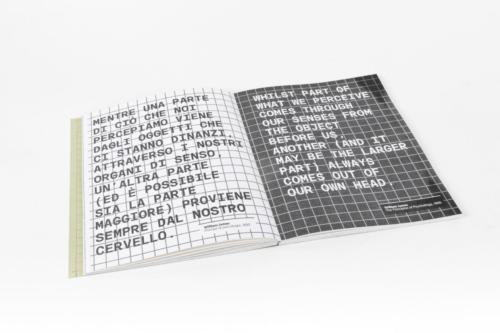 MENTRE UNA PARTE
DI CIÒ CHE NOI
PERCEPIAMO VIENE
DAGLI OGGETTI CHE
CI STANNO DINANZI
ATTRAVERSO I NOSTRI
ORGANI DI SENSO,
UN'ALTRA PARTE
(ED È POSSIBILE
SIA LA PARTE
MAGGIORE) PROVIENE
SEMPRE DAL NOSTRO
CERVELLO.
William James
WHILST PART OF
WHAT WE PERCEIVE
COMES THROUGH
OUR SENSES FROM
THE OBJECT
BEFORE US,
ANOTHER (AND IT
MAY BE THE LARGER
PART) ALWAYS
COMES OUT OF
OUR OWN HEAD.
William James